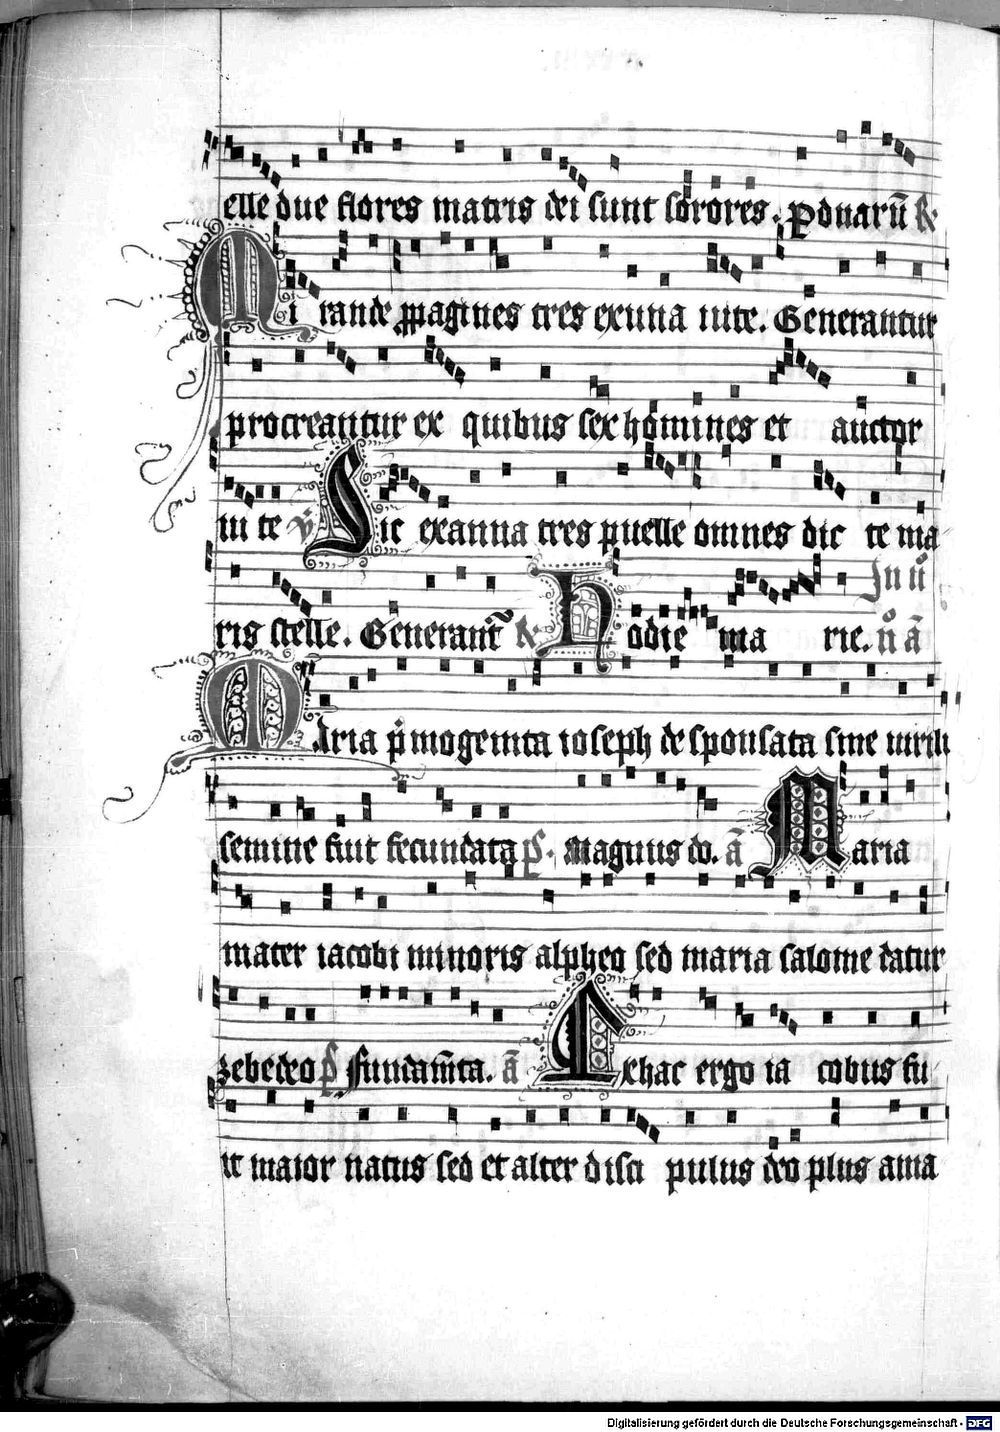 elle due flores matris dei sunt sorores. P duarū R
Mi rande ppagines tres ex una uite. Generantur
procreantur ex quibus sex homines et auctor
iu te v̄ Sic ex anna tres puelle omnes dic te ma
In ii
ris stelle. Generant̄ R Hodie ma rie. ii ā
Maria pͥmogenita ioseph desponsata sine uirili
semine fiut fecundata ps. Magnus do. ā Maria
mater iacobi minoris alpheo sed maria salome datur
zebedeo ps Fundam̄ta. ā Ex hac ergo ia cobus fu
it maior natus sed et alter disci pulus deo plus ama
Digitalisierung gefördert durch die Deutsche Forschungsgemeinschaft - DFG